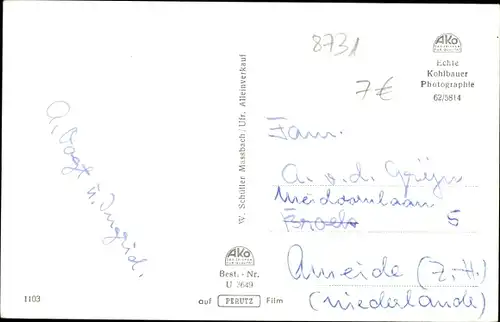 8731
7€
AKO
Echte
Kohlbauer
Photographie
62/5814
W. Schüller Massbach/Ufr. Alleinverkauf
A. Vogt
u. Ingrid.
Fam.
A. v. d.
5
Ameide (Z.H.)
(Niederlande)
AKO
Best.-Nr.
U 2649
1103
auf PERUTZ Film